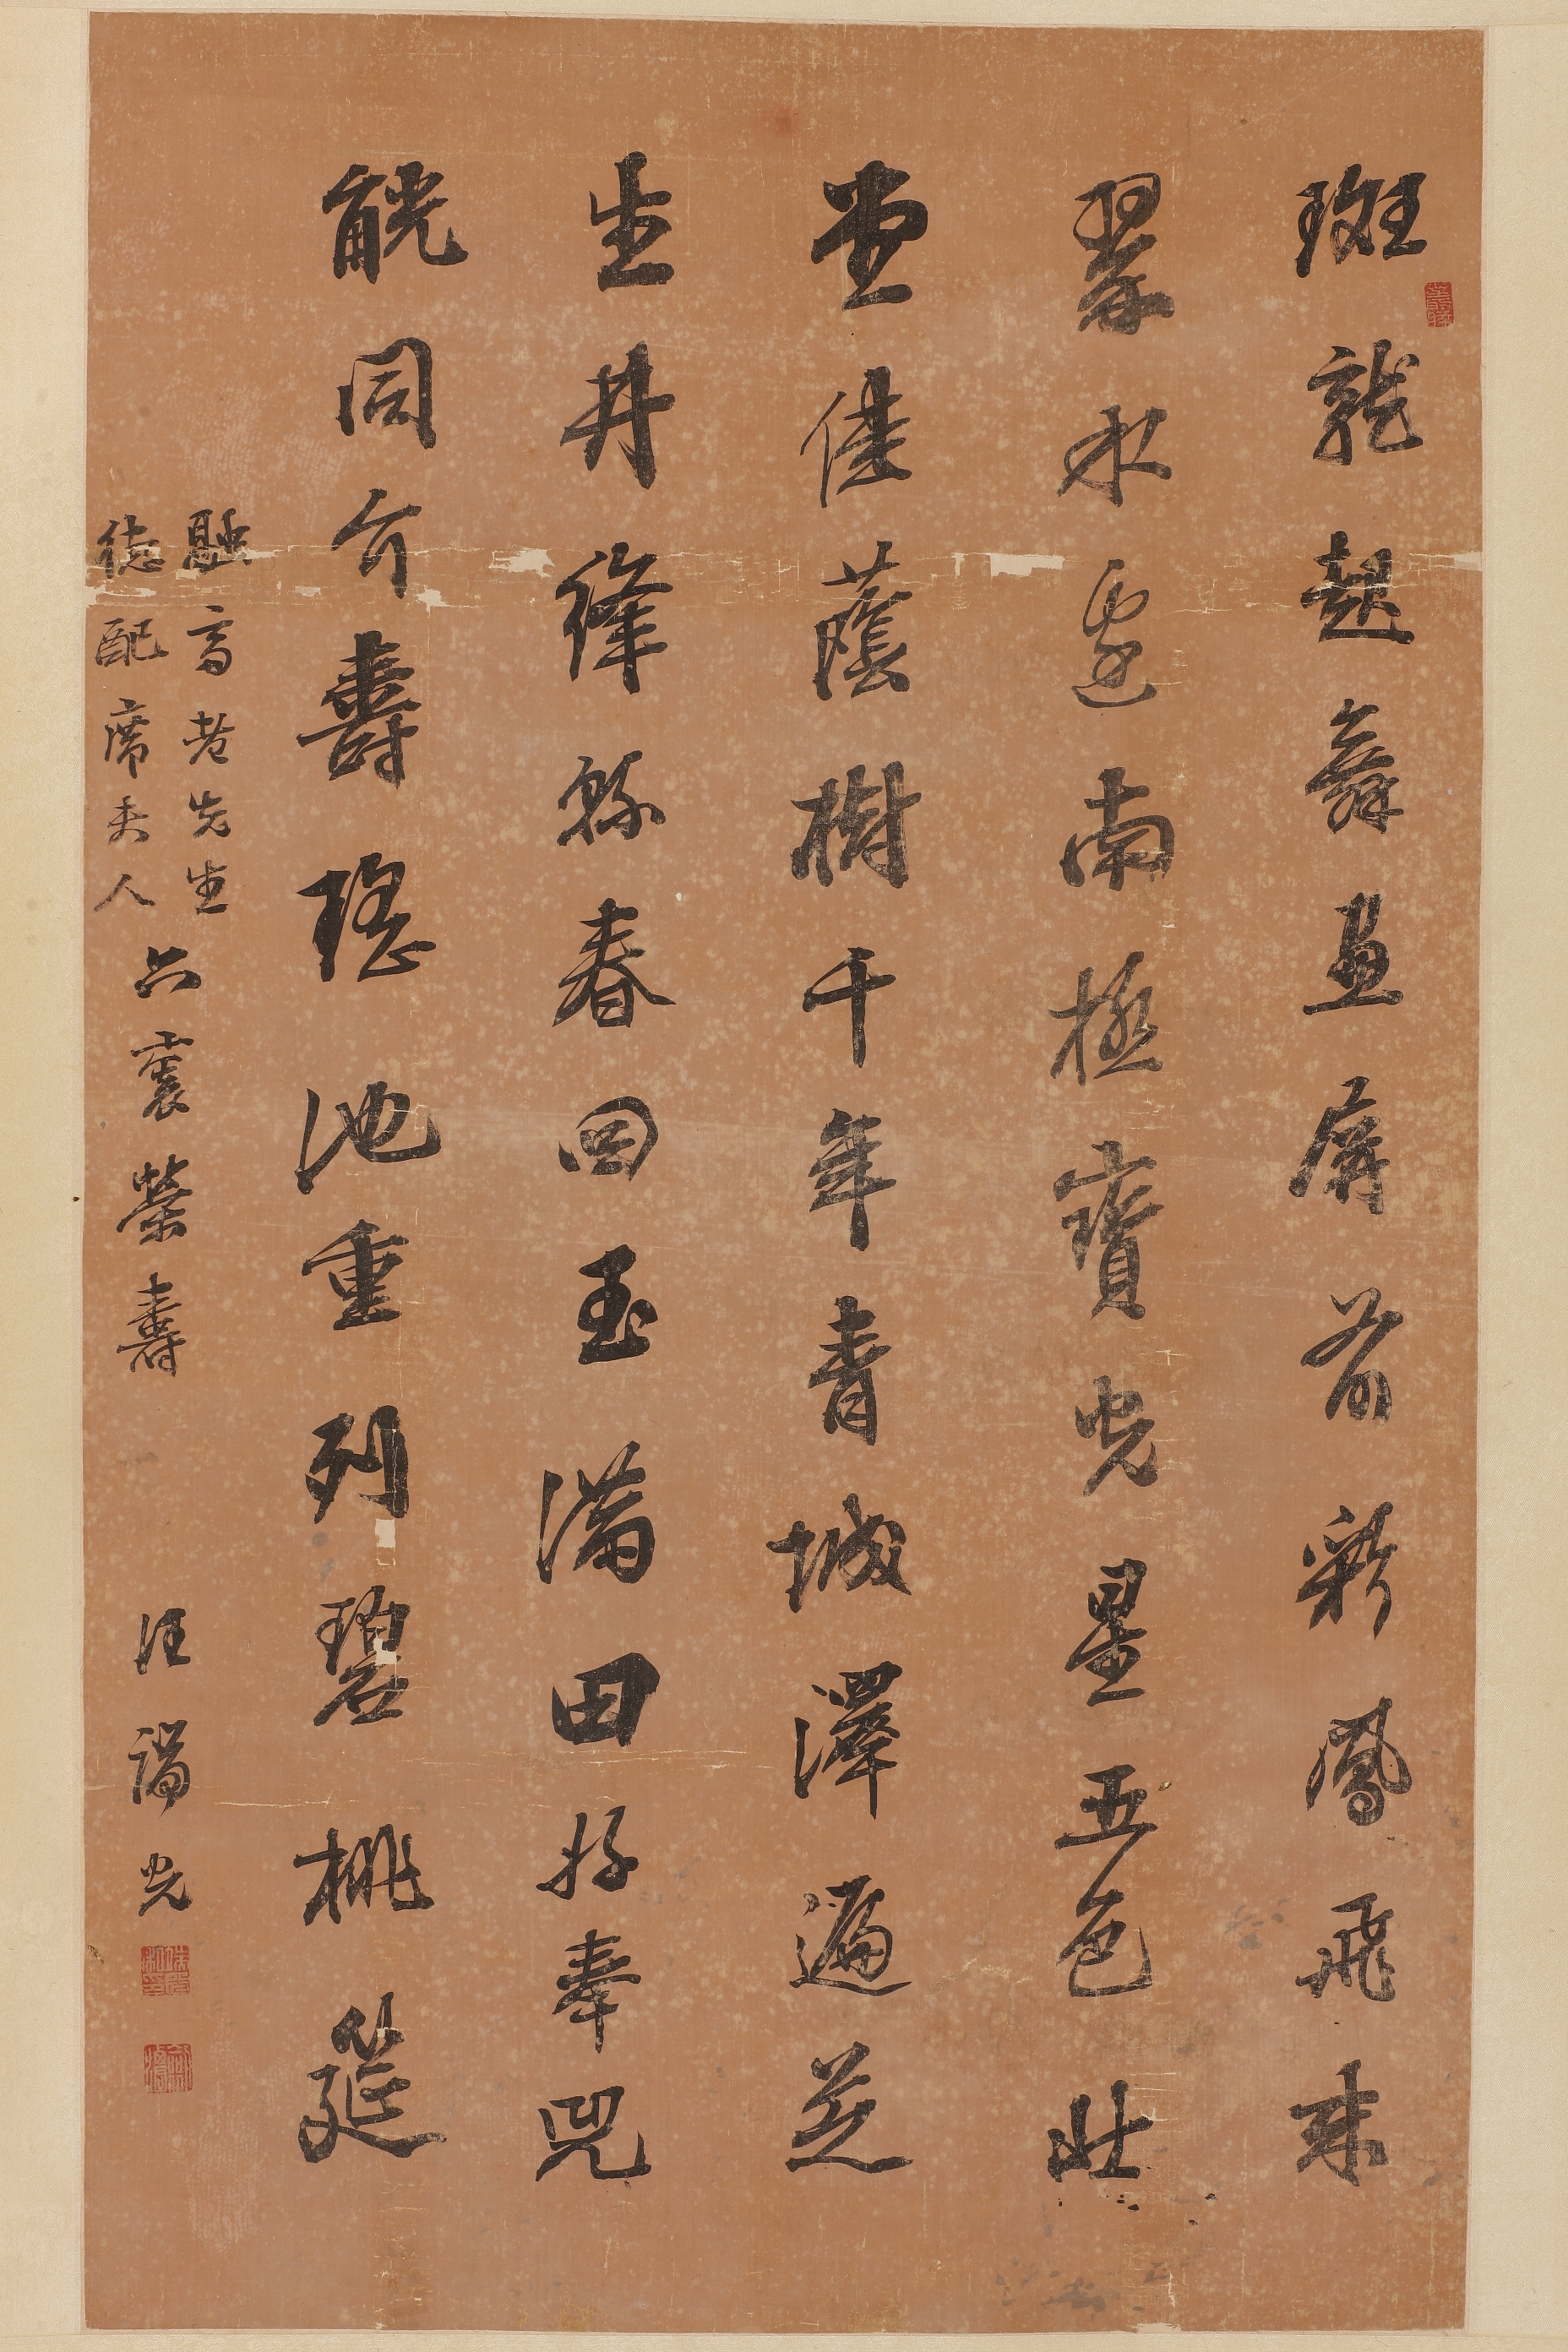 斑龍起舞畫屏前彩鳳飛來
翠水邊南極寶光星五色北
堂佳蔭樹千年青城澤遍芝
生井絳縣春回玉滿田好奉兕
觥同介壽瑤池重列碧桃筵
融高老先生
德配席夫人
六袠榮壽
汪光